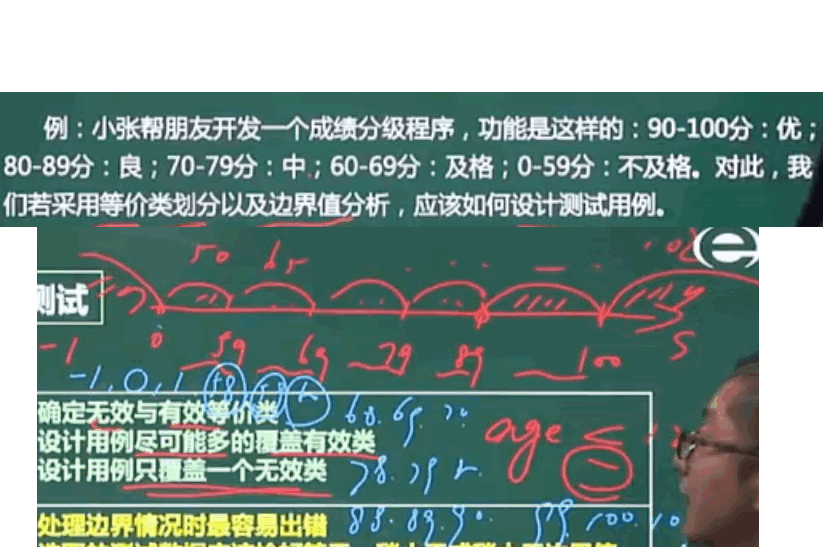 例：小张帮朋友开发一个成绩分级程序，功能是这样的：90-100分：优；
80-89分：良；70-79分：中；60-69分：及格；0-59分：不及格。对此，我
们若采用等价类划分以及边界值分析，应该如何设计测试用例。
50 65
测试
-1 0 59 69 79 89 100
-1, 0, 1
确定无效与有效等价类 68. 69.
设计用例尽可能多的覆盖有效类 age <
设计用例只覆盖一个无效类 78. 79
处理边界情况时最容易出错 88. 89. 90. 99. 100.